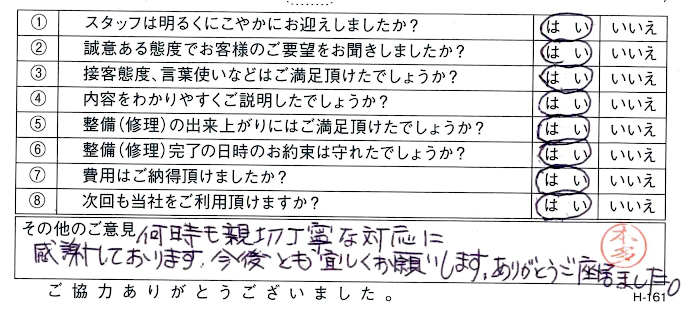 ① スタッフは明るくにこやかにお迎えしましたか? はい いいえ
② 誠意ある態度でお客様のご要望をお聞きしましたか? はい いいえ
③ 接客態度、言葉使いなどはご満足頂けたでしょうか? はい いいえ
④ 内容をわかりやすくご説明したでしょうか? はい いいえ
⑤ 整備(修理)の出来上がりにはご満足頂けたでしょうか? はい いいえ
⑥ 整備(修理)完了の日時のお約束は守れたでしょうか? はい いいえ
⑦ 費用はご納得頂けましたか? はい いいえ
⑧ 次回も当社をご利用頂けますか? はい いいえ
その他のご意見 何時も親切丁寧な対応に
感謝しております。今後とも宜しくお願いします。ありがとうご座居ました。
ご協力ありがとうございました。
H-161